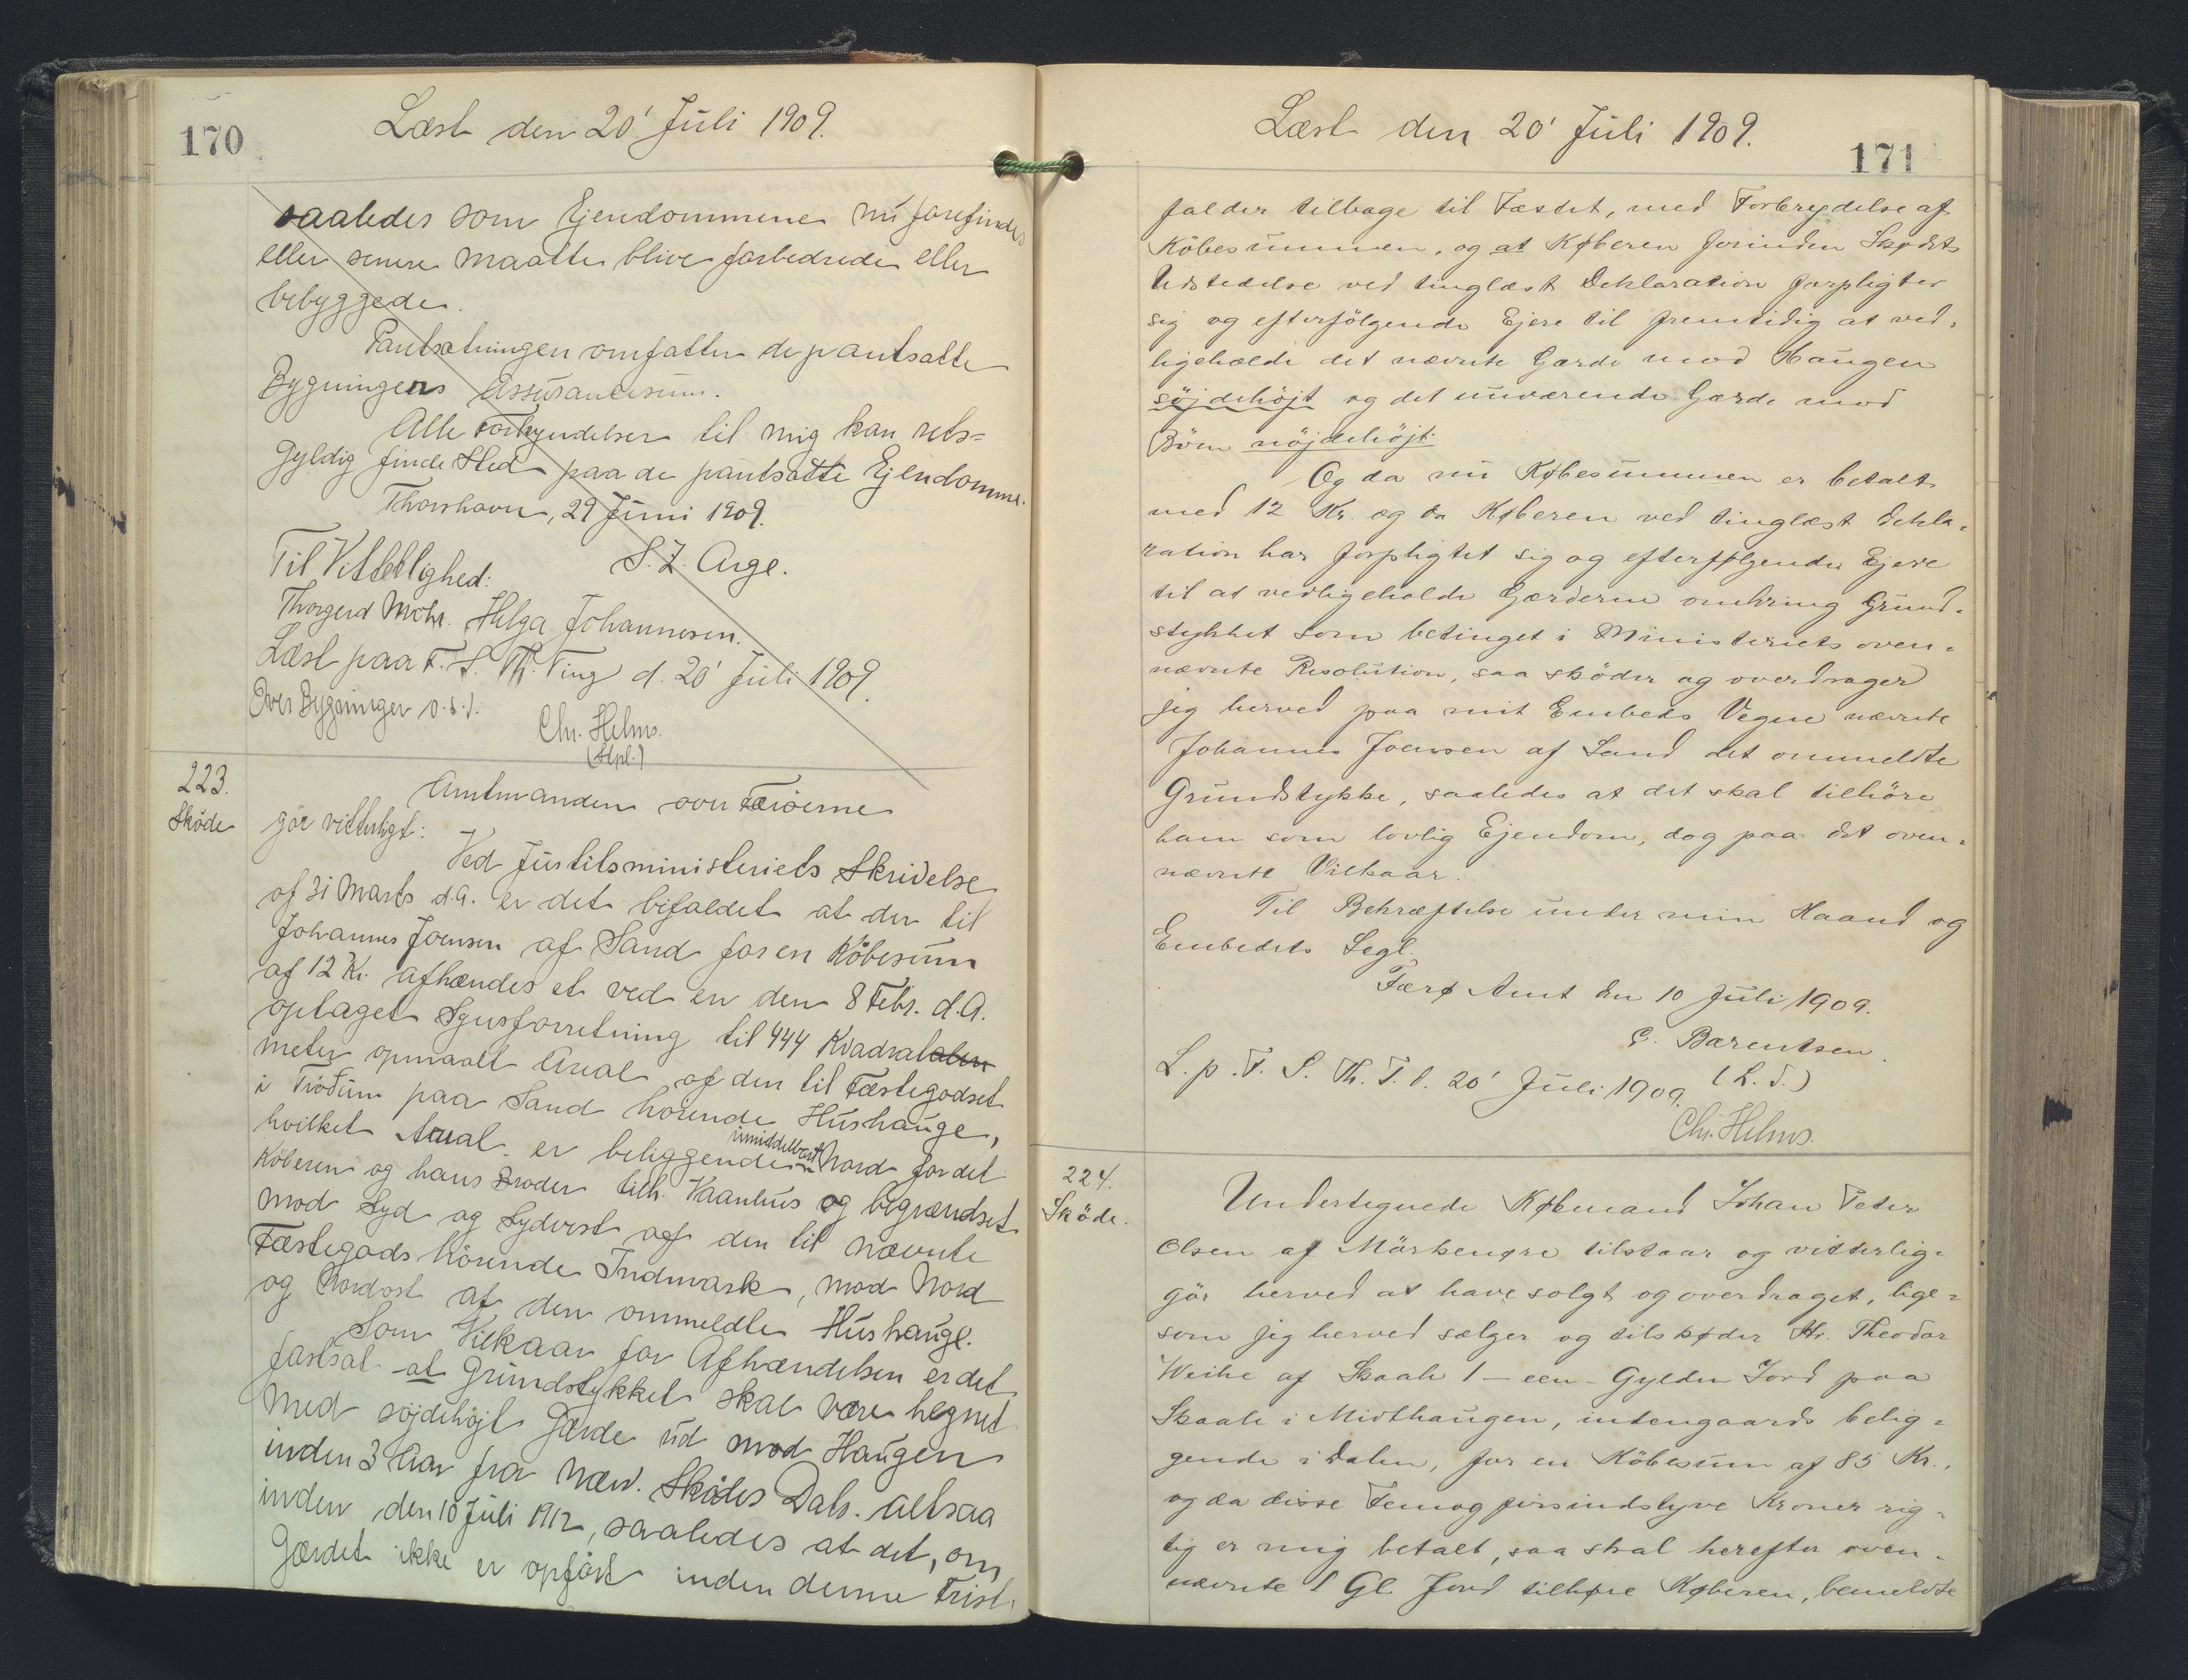 170
Læst den 20' Juli 1909.
saaledes som Ejendommene nu forefindes
eller senere maatte blive forbedrede eller
bebyggede.
Pantsætningen omfatter de pantsatte
Bygningers Assurancesum.
Alle Forkyndelser til mig kan rets=
gyldig finde Sted paa de pantsatte Ejendomme.
Thorshavn, 29 Juni 1909.
S. Z. Arge.
Til Vitterlighed:
Thorgerd Mohr. Helga Johannesen.
Læst paa F. S. Th. Ting d. 20' Juli 1909.
Over Bygninger o.s.v.
Chr. Helms.
(Stpl.)
223.
Sköde
Amtmanden over Færöerne
gör vitterligt:
Ved Justitsministeriets Skrivelse
af 31 Marts d.A. er det bifaldet at der til
Johannes Joensen af Sand for en Köbesum
af 12 Kr. afhændes et ved en den 8 Febr. d.A.
optaget Synsforretning til 444 Kvadratalen
meter opmaalt Areal af den til Fæstegodset
i Trödum paa Sand hörende Hushauge,
hvilket Areal er beliggende umiddelbart Nord for det
Köberen og hans Broder tilh. Vaanhus og begrændset
mod Syd og Sydvest af den til nævnte
Fæstegods hörende Indmark, mod Nord
og Nordost af den ommeldte Hushauge.
Som Vilkaar for Afhændelsen er det
fastsat at Grundstykket skal være hegnet
med söjdehöjt Gærde ud mod Haugen
inden 3 Aar fra nærv. Sködes Dato. altsaa
inden den 10 Juli 1912, saaledes at det, om
Gærdet ikke er opfört inden denne Frist,
Læst den 20' Juli 1909.
171
falder tilbage til Fæstet, med Forbrydelse af
Köbesummen, og at Køberen forinden Skødets
Udstedelse ved tinglæst Deklaration forpligter
sig og efterfölgende Ejere til fremtidig at ved=
ligeholde det nævnte Gærde mod Haugen
söjdehöjt og det nuværende Gærde mod
Böen nöjdehöjt.
Og da nu Købesummen er betalt
med 12 Kr. og da Køberen ved tinglæst Dekla=
ration har forpligtet sig og efterfølgende Ejere
til at vedligeholde Gærderne omkring Grund=
stykket som betinget i Ministeriets oven=
nævnte Resolution, saa sköder og overdrager
jeg herved paa mit Embeds Vegne nævnte
Johannes Joensen af Sand det ommeldte
Grundstykke, saaledes at det skal tilhöre
ham som lovlig Ejendom, dog paa det oven=
nævnte Vilkaar.
Til Bekræftelse under min Haand og
Embedets Segl.
Færø Amt den 10 Juli 1909.
C. Bærentsen.
(L. S.)
L. p. F. S. Th. T. d. 20' Juli 1909.
Chr. Helms.
224.
Sköde.
Undertegnede Købmand Johan Peter
Olsen af Mörkenøre tilstaar og vitterlig=
gör herved at have solgt og overdraget, lige=
som jeg herved sælger og tilskøder Hr. Theodor
Weihe af Skaale 1 – een – Gylden Jord paa
Skaale i Midthaugen, indengaards belig=
gende i Dalen, for en Köbesum af 85 Kr.,
og da disse Femogfirsindstyve Kroner rig=
tig er mig betalt, saa skal herefter oven=
nævnte 1 Gl. Jord tilhøre Køberen, bemeldte